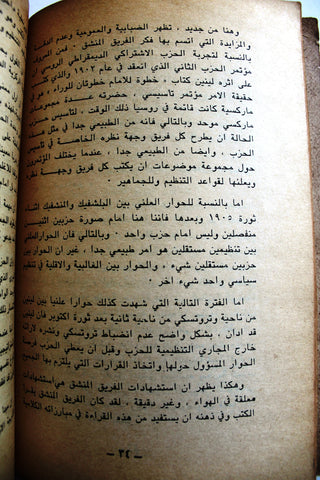 وهنا من جديد ، تظهر الضبابية والعمومية وعدم الدقة
والمزايدة التي اتسم بها فكر الفريق المنشق ، فمن المعروف
بالنسبة لتجربة الحزب الاشتراكي الديمقراطي الروسي ان
مؤتمر الحزب الثاني الذي انعقد في عام ١٩٠٣ والذي كتب
على اثره لينين كتاب « خطوة للامام خطوتان للوراء » ، هو
حقيقة الامر مؤتمر تأسيسي ، حضرته عدة مجموعات
ماركسية كانت قائمة في روسيا ذلك الوقت ، لتأسيس حزب
ماركسي موحد وبالتالي فانه من الطبيعي جدا في مثل هذه
الحالة أن يطرح كل فريق وجهة نظره الخاصة في تأسيس
الحزب ، وايضا من الطبيعي جدا ، عندما يختلف المؤتمرون
حول مجموعة موضوعات ان يكتب كل فريق وجهة نظره
ويعلنها لقواعد التنظيم وللجماهير .
اما بالنسبة للحوار العلني بين البلشفيك والمنشفيك اثناء
ثورة ١٩٠٥ وبعدها فاننا هنا امام صورة حزبين اثنين
منفصلين وليس امام حزب واحد . وبالتالي فان الحوار العلني
بين تنظيمين مستقلين هو امر طبيعي جدا ، غير ان الحوار بين
حزبين مستقلين شيء ، والحوار بين الغالبية والاقلية في تنظيم
سياسي واحد شيء اخر .
اما الفترة التالية التي شهدت كذلك حوارا علنيا بين لينين
من ناحية وتروتسكي من ناحية ثانية بعد ثورة اكتوبر فان لينين
قد ادان . بشكل واضح عدم انضباط تروتسكي ونشره لارائه
خارج المجاري التنظيمية للحزب وقبل ان يعطي الحزب فرصة
الحوار المسؤول حولها واتخاذ القرارات التي يلتزم بها الجميع
وهكذا يظهر ان استشهادات الفريق المنشق هي استشهادات
معلقة في الهواء ، وغير دقيقة ، لقد كان الفريق المنشق يقرأ
الكتب وفي ذهنه ان يستفيد من هذه القراءة في مبارزاته الكلامية
— ٣٤ —